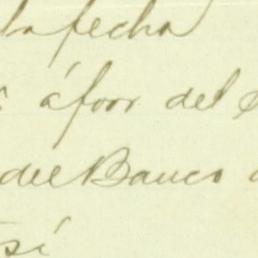 la fecha
á favor del
del Banco
sí